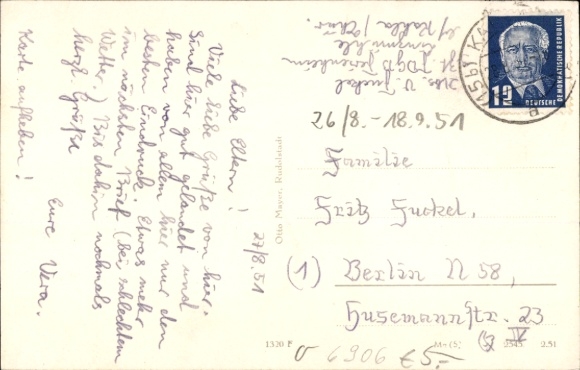 Liebe Eltern!
Viele liebe Grüße von hier.
Sind hier gut gelandet und
haben vor allem hier nur den
besten Eindruck. Etwas mehr
im nächsten Brief (bei schlechtem
Wetter.) Bis dahin nochmals
herzl. Grüße
Eure Vera.
Karte aufheben!
27/8.51
Abs. V. Funkel
FDGB Ferienheim
b/ Kahla/Thür.
26/8.-18.9.51
Familie
Fritz Funkel,
(1) Berlin N 58,
Husemannstr. 23
IV
Otto Mayer, Rudolstadt
1320 F
2545 2.51
6906 €5-
12
DEUTSCHE
DEMOKRATISCHE REPUBLIK